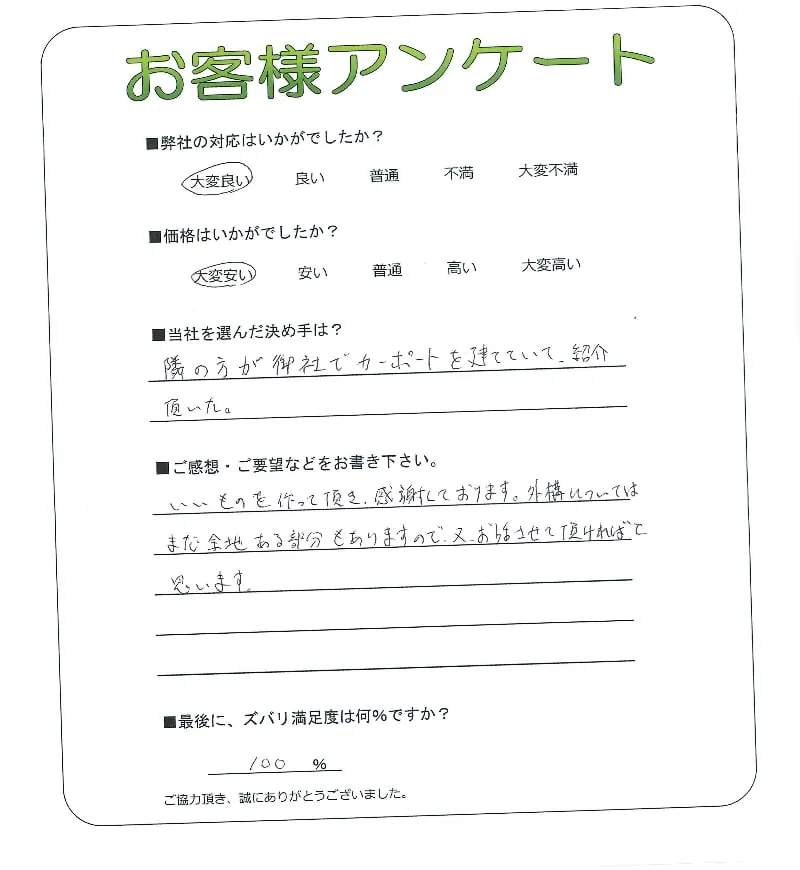 お客様アンケート
■弊社の対応はいかがでしたか?
大変良い 良い 普通 不満 大変不満
■価格はいかがでしたか?
大変安い 安い 普通 高い 大変高い
■当社を選んだ決め手は?
隣の方が御社でカーポートを建てていて、紹介
頂いた。
■ご感想・ご要望などをお書き下さい。
いいものを作って頂き、感謝しております。外構については
まだ余地ある部分もありますので、又、お話させて頂ければと
思います。
■最後に、ズバリ満足度は何%ですか?
100 %
ご協力頂き、誠にありがとうございました。